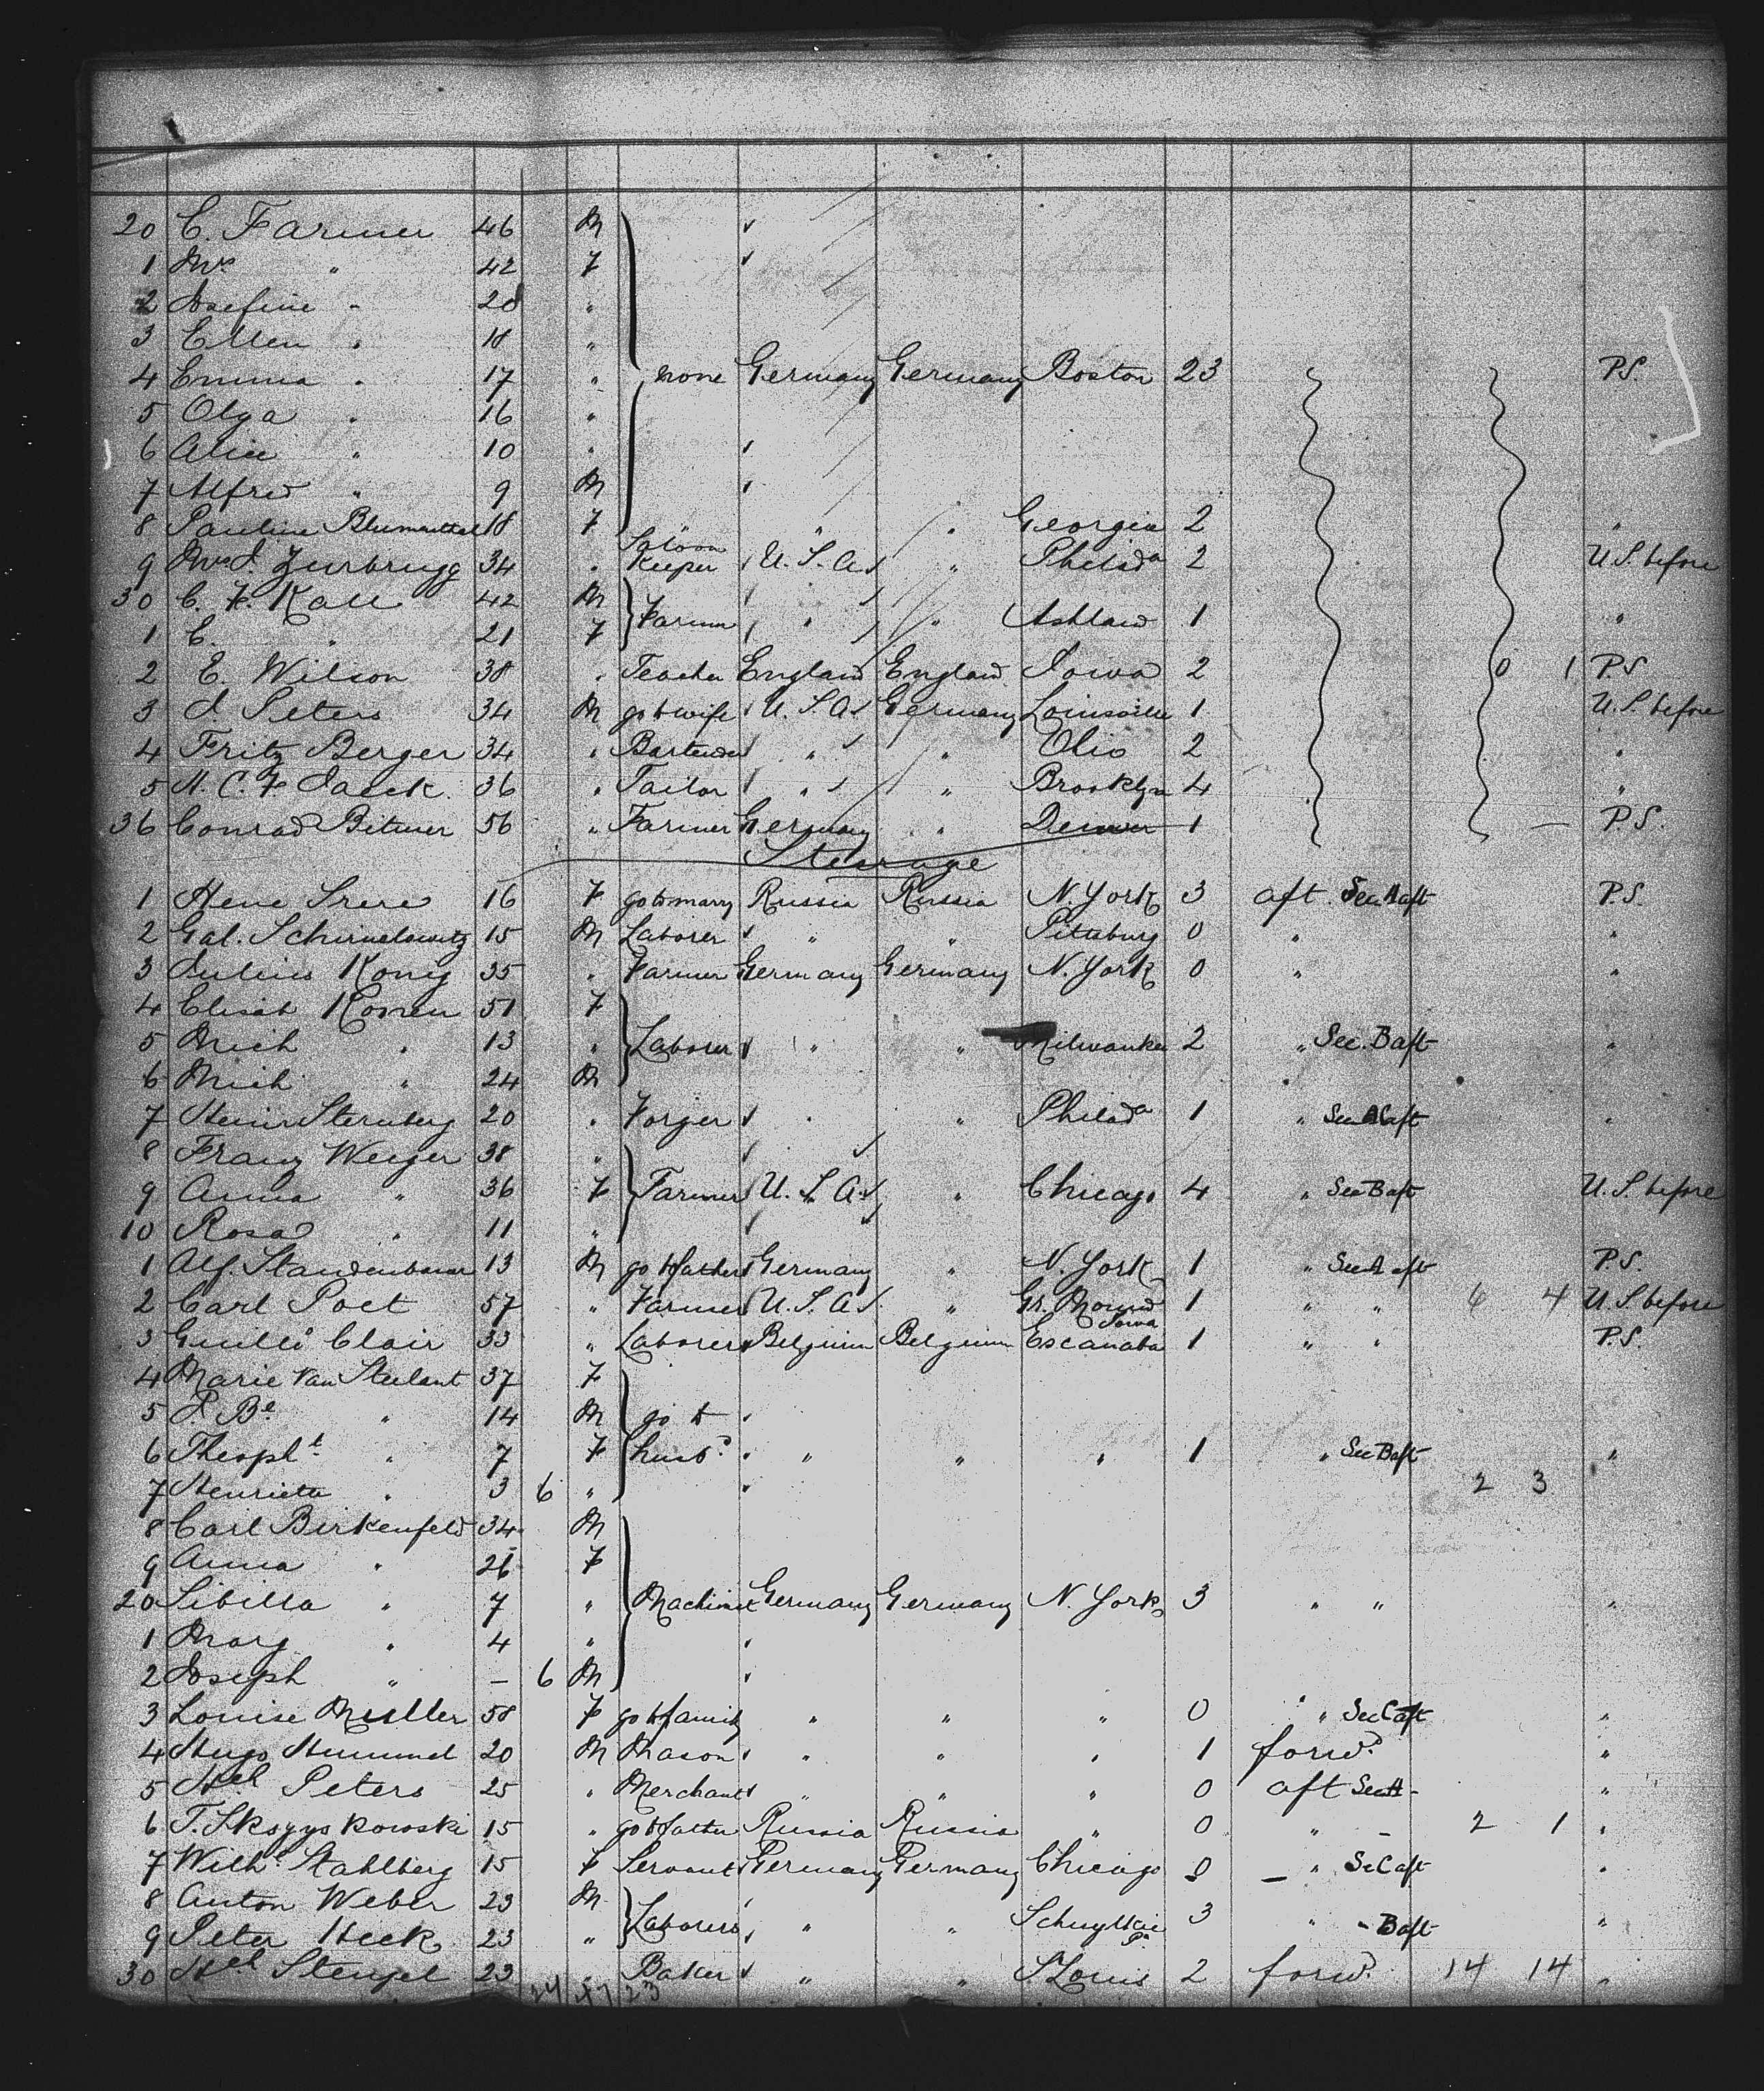 20 C. Farmer 46 M
1 Mrs " 42 F
2 Josefine " 20 "
3 Ellen " 18 "
4 Emma " 17 " none Germany Germany Boston 23 P.S.
5 Olga " 16 "
6 Alice " 10 "
7 Alfred " 9 M
8 Pauline Blumenthal 18 F " " " Georgia 2 "
9 Mrs J. Zurbrugg 34 " Saloon Keeper U.S.A. " Philada 2 U.S. before
30 C. F. Kall 42 M
1 C. " 21 F Farmer " " Ashland 1 "
2 E. Wilson 38 " Teacher England England Iowa 2 0 1 P.S.
3 J. Peters 34 M go to wife U.S.A. Germany Louisville 1 U.S. before
4 Fritz Berger 34 " Bartender " " Ohio 2 "
5 N. C. F. Jaeck 36 " Tailor " " Brooklyn 4 "
36 Conrad Bitmer 56 " Farmer Germany " Denver 1 — P.S.
Steerage
1 16 F go to marry Russia Russia N. York 3 aft Sec. A aft P.S.
2 Gal. 15 M Laborer " " Pittsburg 0 " "
3 Julius Konig 35 " Farmer Germany Germany N. York 0 " "
4 Elisab Konen 51 F
5 Mich " 13 " Laborer " " Milwaukee 2 " Sec. B aft "
6 Mich " 24 M
7 Heinr Sternberg 20 " Forger " " Philada 1 " Sec A aft "
8 Franz Weiger 38 "
9 Anna " 36 F Farmer U.S.A. " Chicago 4 " Sec B aft U.S. before
10 Rosa " 11 "
1 Alf. Standenbauer 13 M go to father Germany " N. York 1 " Sec A aft P.S.
2 Carl Poet 57 " Farmer U.S.A. " Gr. Mound Iowa 1 " " 6 4 U.S. before
3 Clair 33 " Laborer Belgium Belgium Escanaba 1 " " P.S.
4 Marie Van Steelant 37 F
5 P. Be " 14 M go to
6 Theophl " 7 F husbd " " " 1 " Sec B aft "
7 Henrietta " 3 6 " 2 3
8 Carl Birkenfeld 34 M
9 Anna " 26 F
20 Sibilla " 7 " Machinist Germany Germany N. York 3 " " "
1 Marg " 4 "
2 Joseph " — 6 M
3 Louise Muller 58 F go to family " " " 0 " Sec C aft "
4 Hugo Hummel 20 M Mason " " " 1 forwd "
5 Hch Peters 25 " Merchant " " " 0 aft Sec A "
6 T. 15 " go to father Russia Russia " 0 " " 2 1 "
7 Wilhe Stahlberg 15 F Servant Germany Germany Chicago 0 " Sec C aft "
8 Anton Weber 23 M
9 Peter Heck 23 " Laborers " " Schuylkill Pa 3 " " B aft "
30 Hch Stengel 23 Baker " " St Louis 2 forwd 14 14 "
24 47 23